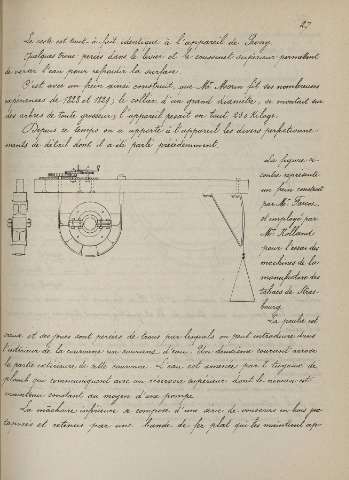 27
Le reste est tout-à-fait identique à l'appareil de Prony.
Quelques trous percés dans le levier et le coussinet supérieur permettent
de verser l'eau pour refroidir la surface.
C'est avec un frein ainsi construit, que Mr. Morin fit des nombreuses
expériences de 1828 et 1829; le collier, à un grand diamètre, se montait sur
des arbres de toute grosseur; l'appareil pesait en tout 230 Kilogs.
Depuis ce temps on a apporté à l'appareil les divers perfectionne-
ments de détail dont il a été parlé précédemment.
La figure ci-
contre représente
un frein construit
par Mr.
et employé par
Mr. Rolland
pour l'essai des
machines de la
manufacture des
tabacs de Stras-
bourg.
La poulie est
creuse et ses joues sont percées de trous par lesquels on peut introduire dans
l'intérieur de la couronne un courant d'eau. Un deuxième courant arrose
la partie extérieure de cette couronne. L'eau est amenée par 2 tuyaux de
plomb qui communiquent avec un réservoir supérieur dont le niveau est
maintenu constant au moyen d'une pompe.
La mâchoire inférieure se compose d'une série de voussoirs en bois jux-
taposés et retenus par une bande de fer plat qui les maintient ap-